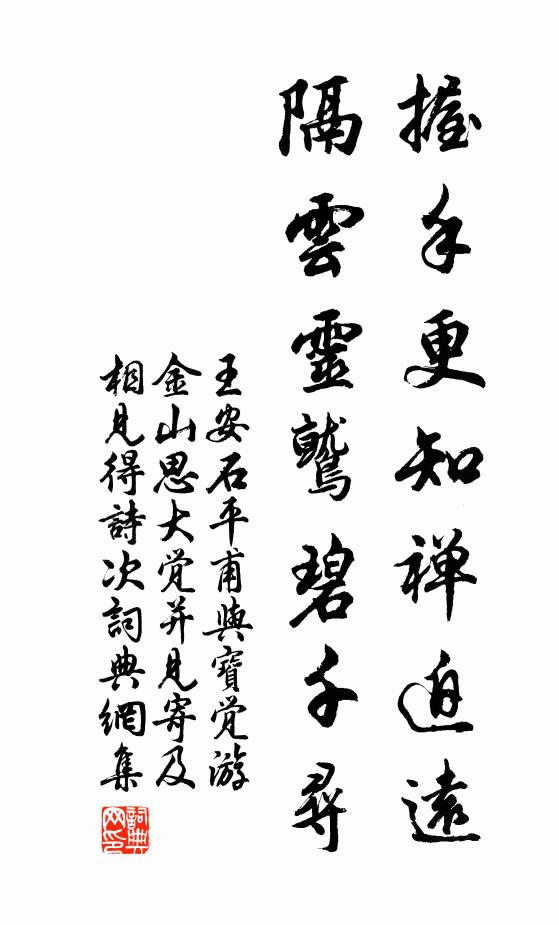 握手更知禅迫遠
隔雲靈鷲碧千尋
王安石平甫與寶覚游
金山思大覚并見寄及
相見得詩次詞典網集
詞典网印